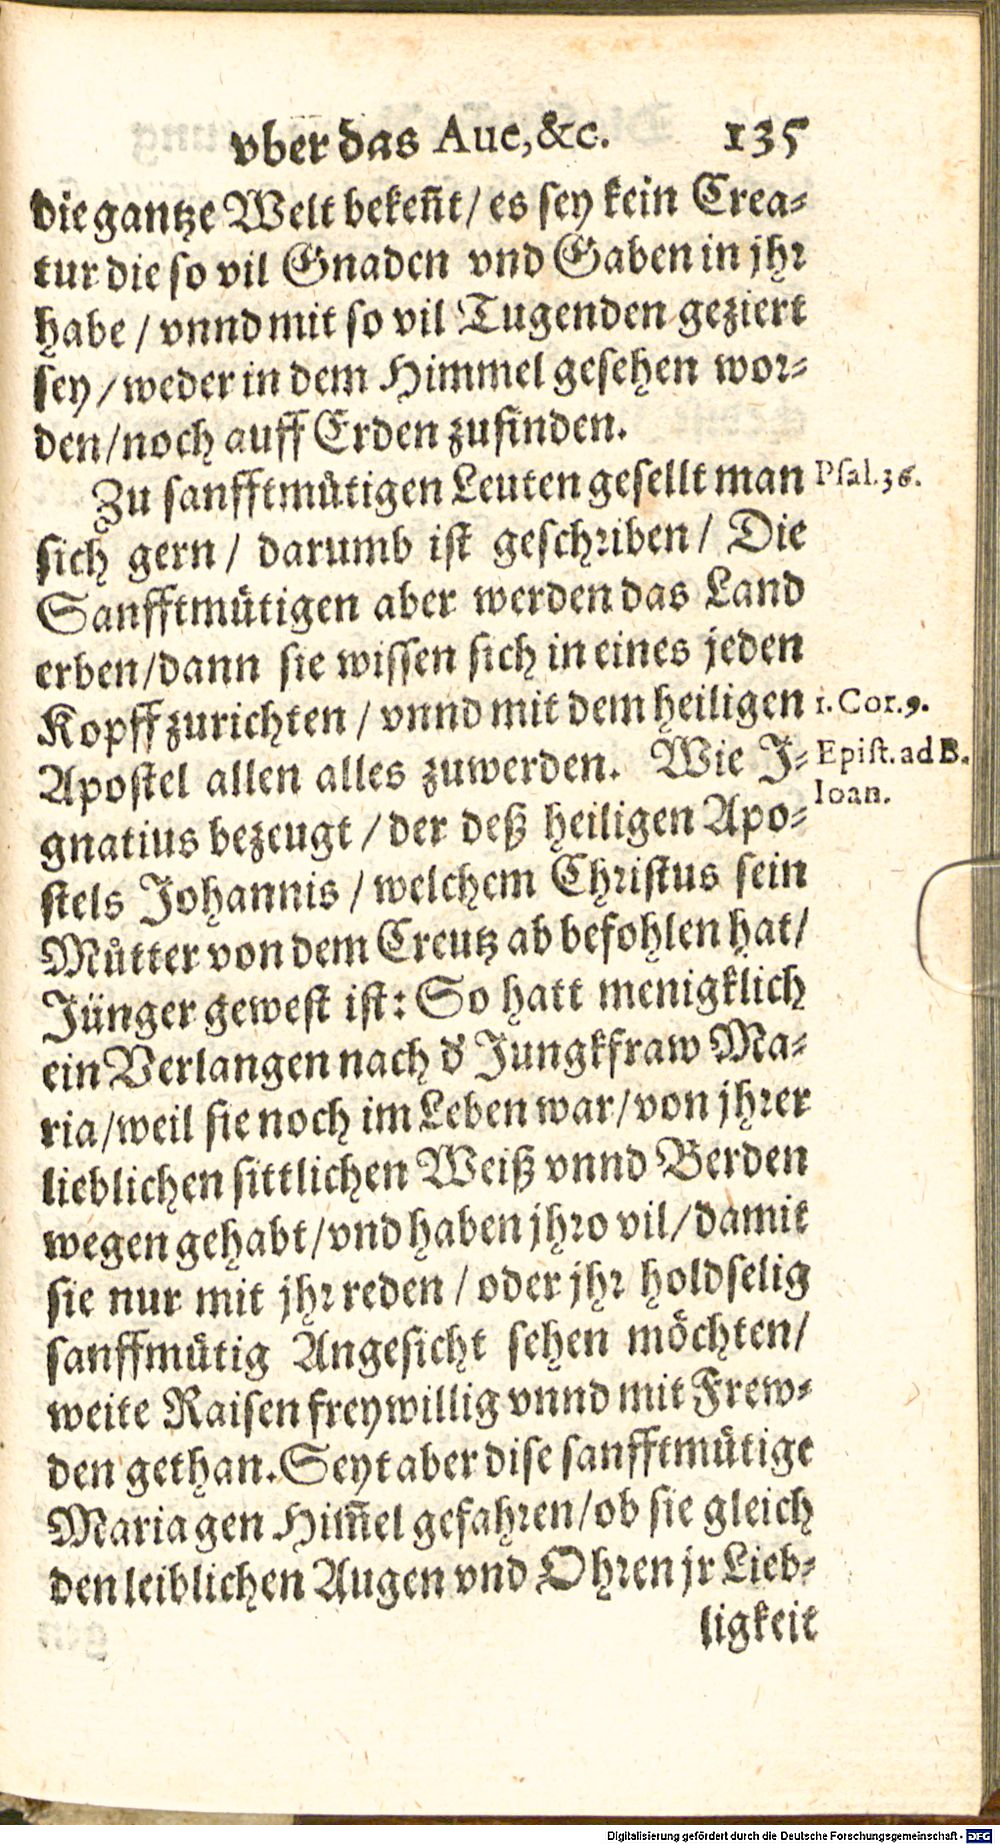 vber das Aue, &c. 135
die gantze Welt bekeñt / es sey kein Crea-
tur die so vil Gnaden vnd Gaben in jhr
habe / vnnd mit so vil Tugenden geziert
sey / weder in dem Himmel gesehen wor-
den / noch auff Erden zufinden.
Zu sanfftmütigen Leuten gesellt man
Psal. 36.
sich gern / darumb ist geschriben / Die
Sanfftmütigen aber werden das Land
erben / dann sie wissen sich in eines jeden
Kopff zurichten / vnnd mit dem heiligen
1. Cor. 9.
Apostel allen alles zuwerden. Wie J-
Epist. ad B.
Ioan.
gnatius bezeugt / der deß heiligen Apo-
stels Johannis / welchem Christus sein
Můtter von dem Creutz ab befohlen hat /
Jünger gewest ist: So hatt menigklich
ein Verlangen nach d' Jungkfraw Ma-
ria / weil sie noch im Leben war / von jhrer
lieblichen sittlichen Weiß vnnd Berden
wegen gehabt / vnd haben jhro vil / damit
sie nur mit jhr reden / oder jhr holdselig
sanffmütig Angesicht sehen möchten /
weite Raisen freywillig vnnd mit Frew-
den gethan. Seyt aber dise sanfftmütige
Maria gen Him̃el gefahren / ob sie gleich
den leiblichen Augen vnd Ohren jr Lieb-
ligkeit
Digitalisierung gefördert durch die Deutsche Forschungsgemeinschaft - DFG